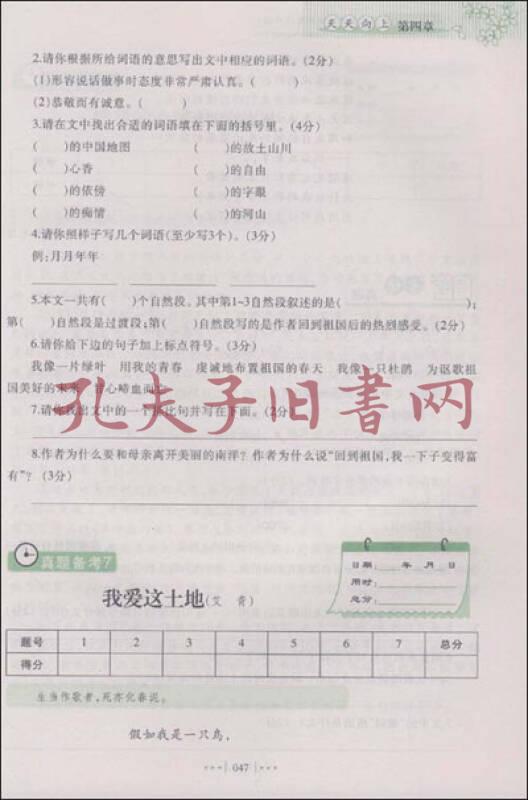 天天向上 第四章
2.请你根据所给词语的意思写出文中相应的词语。(2分)
(1)形容说话做事时态度非常严肃认真。( )
(2)恭敬而有诚意。( )
3.请在文中找出合适的词语填在下面的括号里。(4分)
( )的中国地图 ( )的故土山川
( )心香 ( )的自由
( )的依傍 ( )的字眼
( )的痴情 ( )的河山
4.请你照样子写几个词语(至少写3个)。(3分)
例:月月年年
5.本文一共有( )个自然段。其中第1~3自然段叙述的是( );
第( )自然段是过渡段;第( )自然段写的是作者回到祖国后的热烈感受。(2分)
6.请你给下边的句子加上标点符号。(3分)
我像一片绿叶 用我的青春 虔诚地布置祖国的春天 我像一只杜鹃 为讴歌祖
国美好的未来 心啼血面
7.请你找出文中的一个排比句并写在下面。(2分)
孔夫子旧书网
8.作者为什么要和母亲离开美丽的南洋?作者为什么说“回到祖国,我一下子变得富
有”?(3分)
真题备考7
日期: 年 月 日
用时:
总分:
我爱这土地(艾 青)
题号 1 2 3 4 5 6 7 总分
得分
生当作歌者,死亦化春泥。
假如我是一只鸟,
047